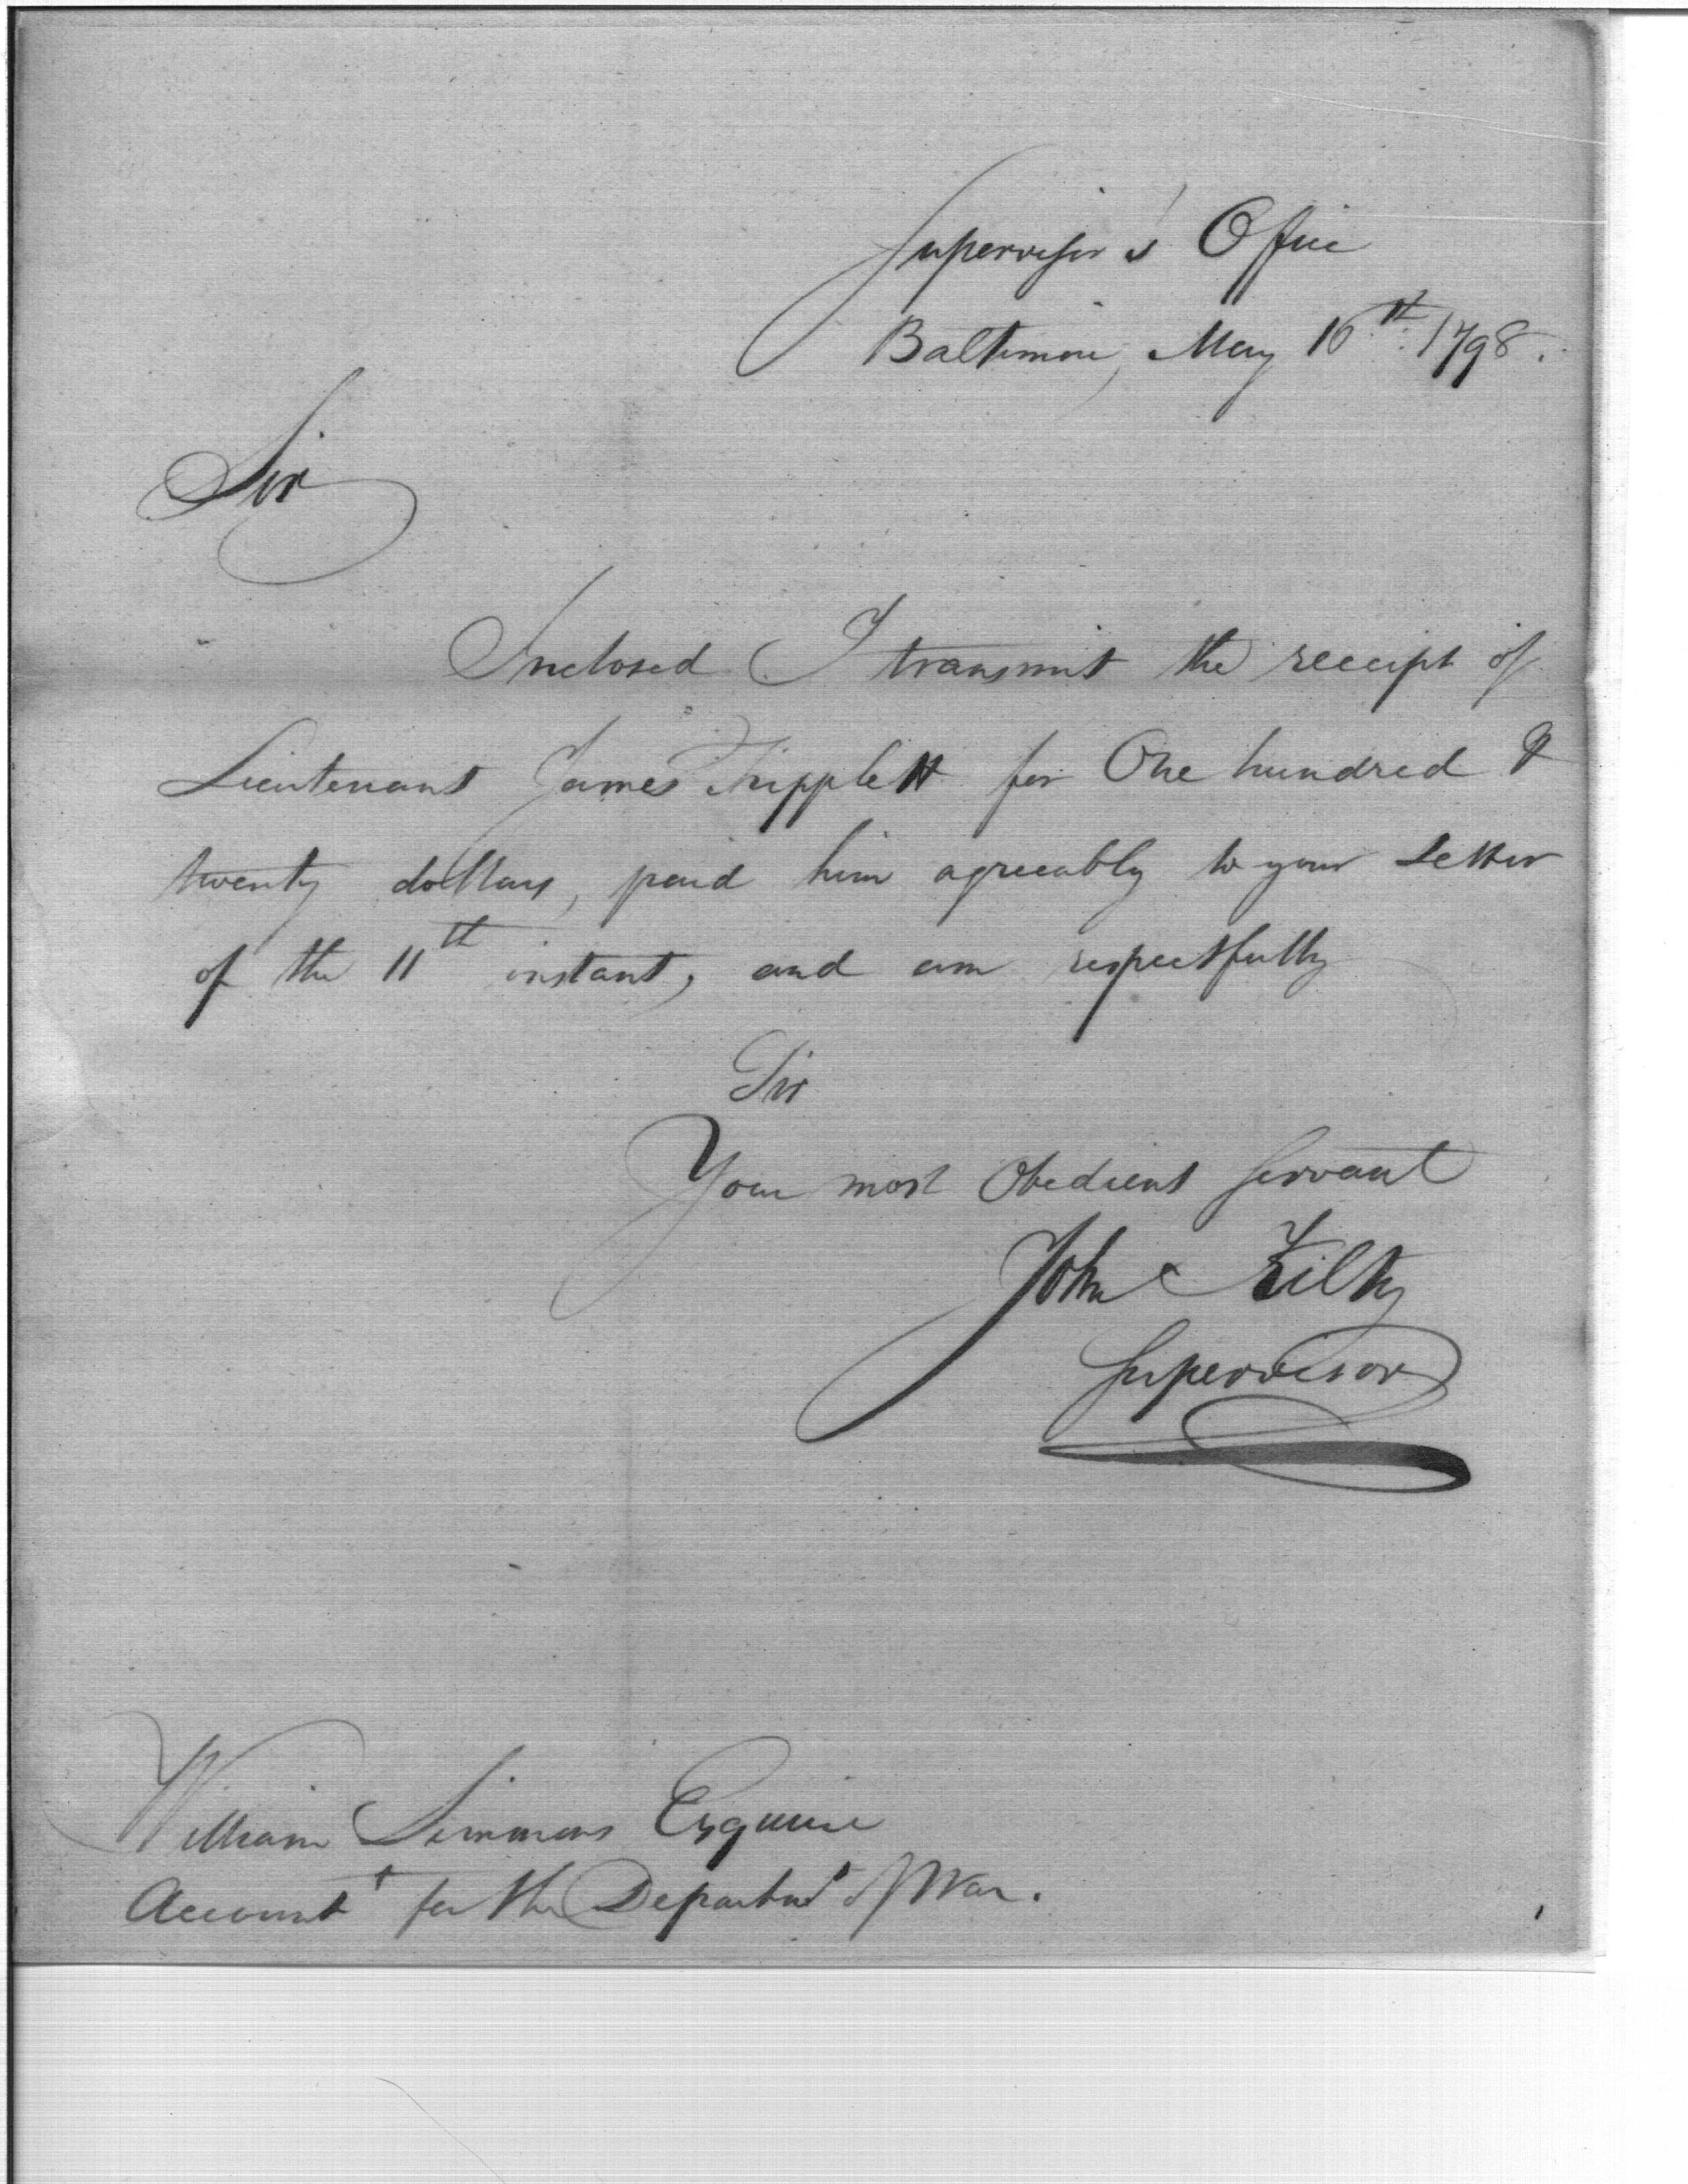 Supervisor's Office
Baltimore, May 16th. 1798.
Sir
Inclosed I transmit the receipt of
Lieutenant James Tripplett for One hundred &
twenty dollars, paid him agreeably to your Letter
of the 11th instant, and am respectfully
Sir
Your most Obedient Servant
John Kilty
Supervisor
William Simmons Esquire
Accountt for the Departmt of War.